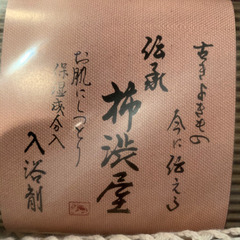 古きよきもの
今に伝える
伝承
柿渋屋
お肌にしっとり
保湿成分入
入浴剤